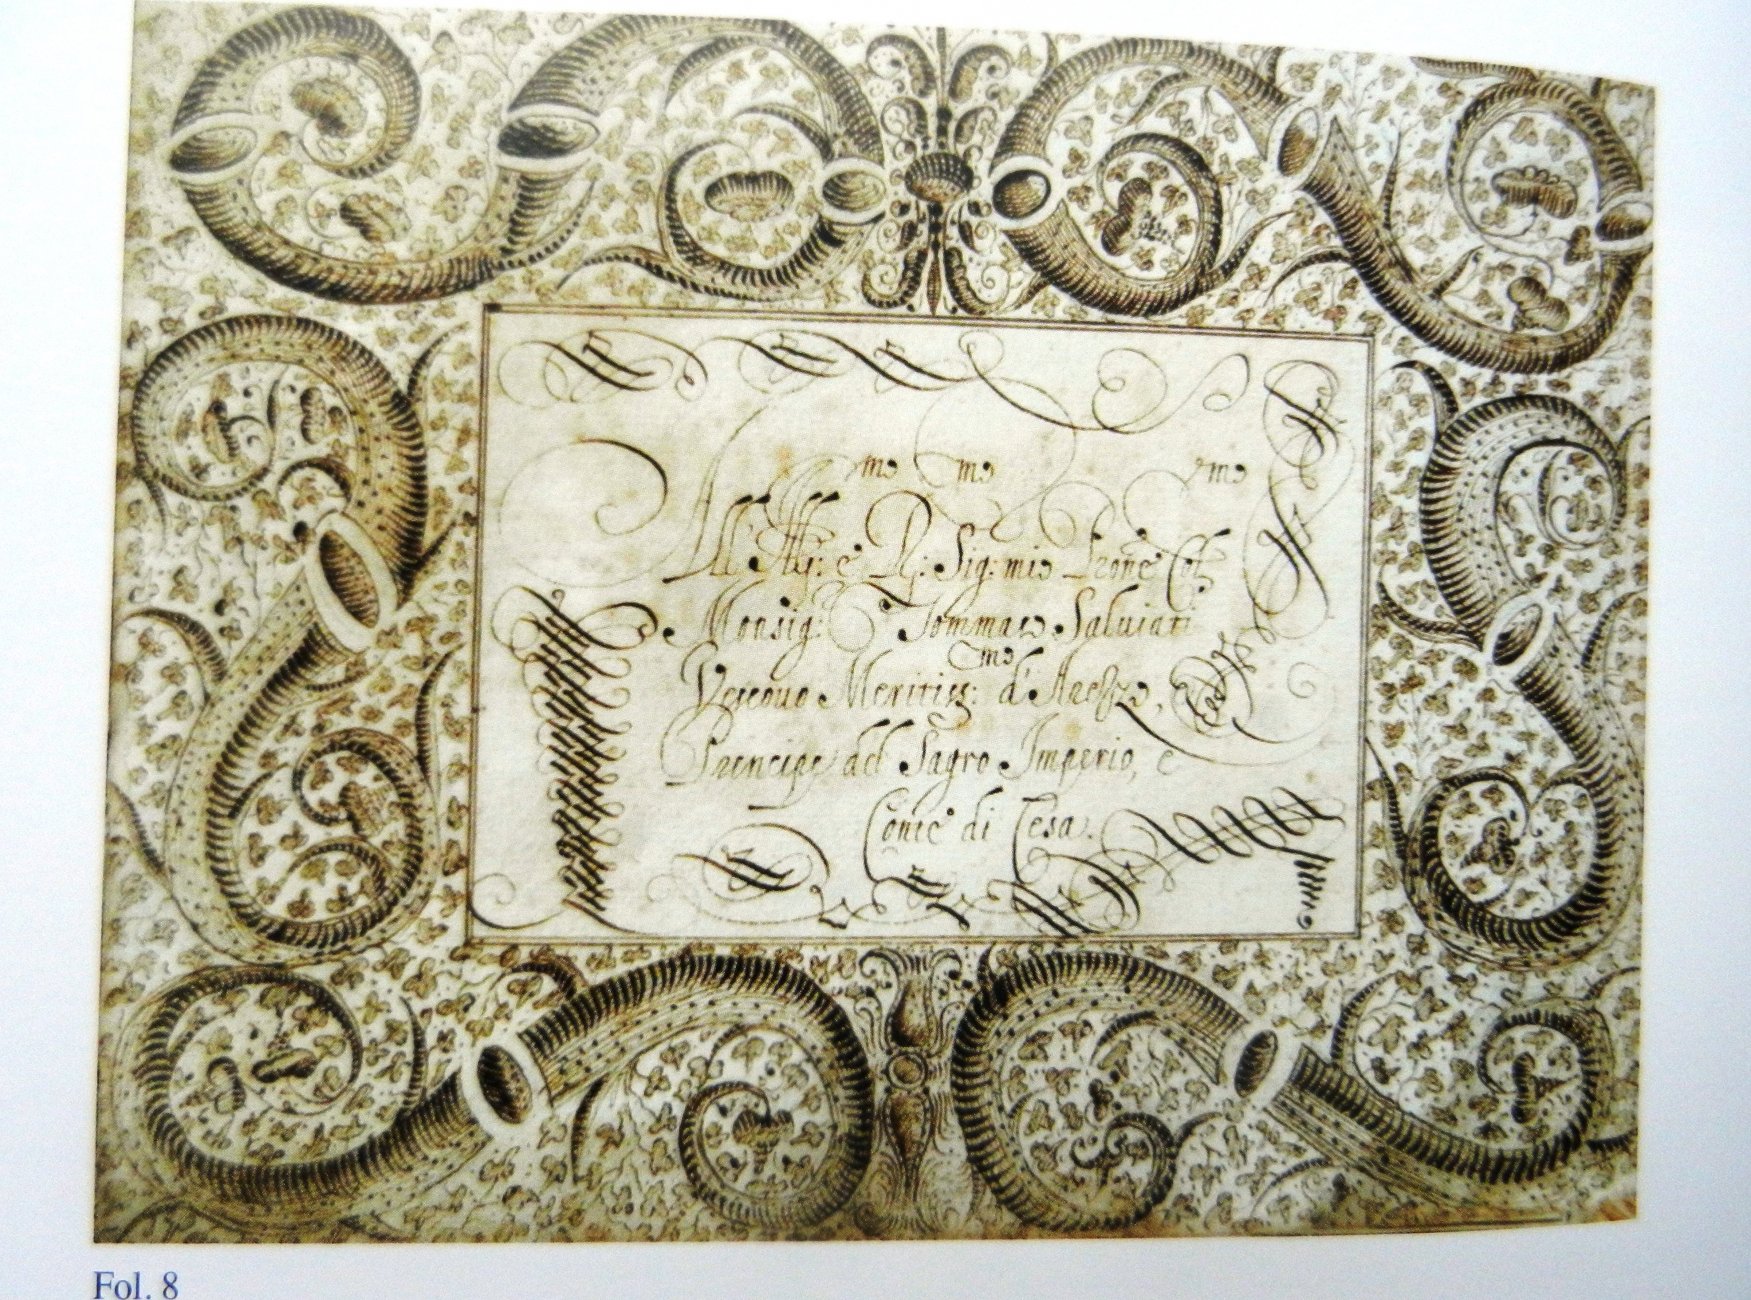 mo mo mo
All' Ill: e R: Sig: mio Prone Col
Monsig: Tommaso Saluiati
mo
Vescouo Meritiss: d'Arezzo, e
Principe del Sagro Imperio, e
Conte di Cesa.
Fol. 8